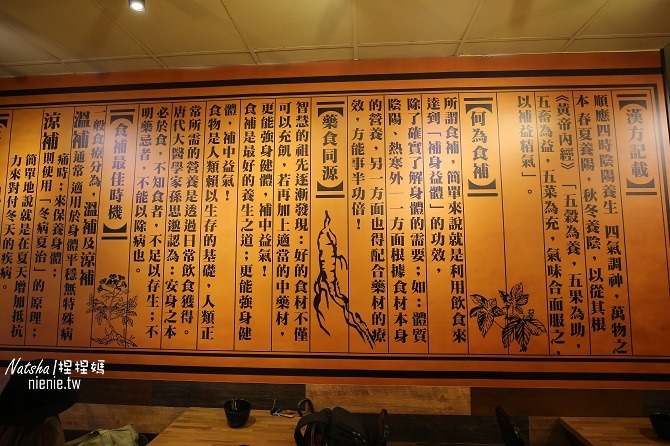 【漢方記載】
順應四時陰陽養生 四氣調神，萬物之
本 春夏養陽，秋冬養陰，以從其根
《黃帝內經》「五穀為養，五果為助，
五畜為益，五菜為充，氣味合而服之，
以補益精氣」。
【何為食補】
所謂食補，簡單來說就是利用飲食來
達到「補身益體」的功效，
除了確實了解身體的需要；如：體質
陰陽、熱寒外，一方面根據食材本身
的營養，另一方面也得配合藥材的療
效，方能事半功倍！
【藥食同源】
智慧的祖先逐漸發現：好的食材不僅
可以充飢，若再加上適當的中藥材，
更能強身健體，補中益氣！
食補是最好的養生之道；更能強身健
體，補中益氣！
食物是人類賴以生存的基礎，人類正
常所需的營養是透過日常飲食獲得。
唐代大醫學家孫思邈認為：安身之本
必於食，不知食者，不足以存生；不
明藥忌者，不能以除病也。
【食補最佳時機】
一般食療分為 溫補及涼補
溫補通常 適用於身體平穩無特殊病
痛時；來保養身體；
涼補則使用「冬病夏治」的原理；
簡單地說就是在夏天增加抵抗
力來對付冬天的疾病。
Natsha|捏捏媽
nienie.tw